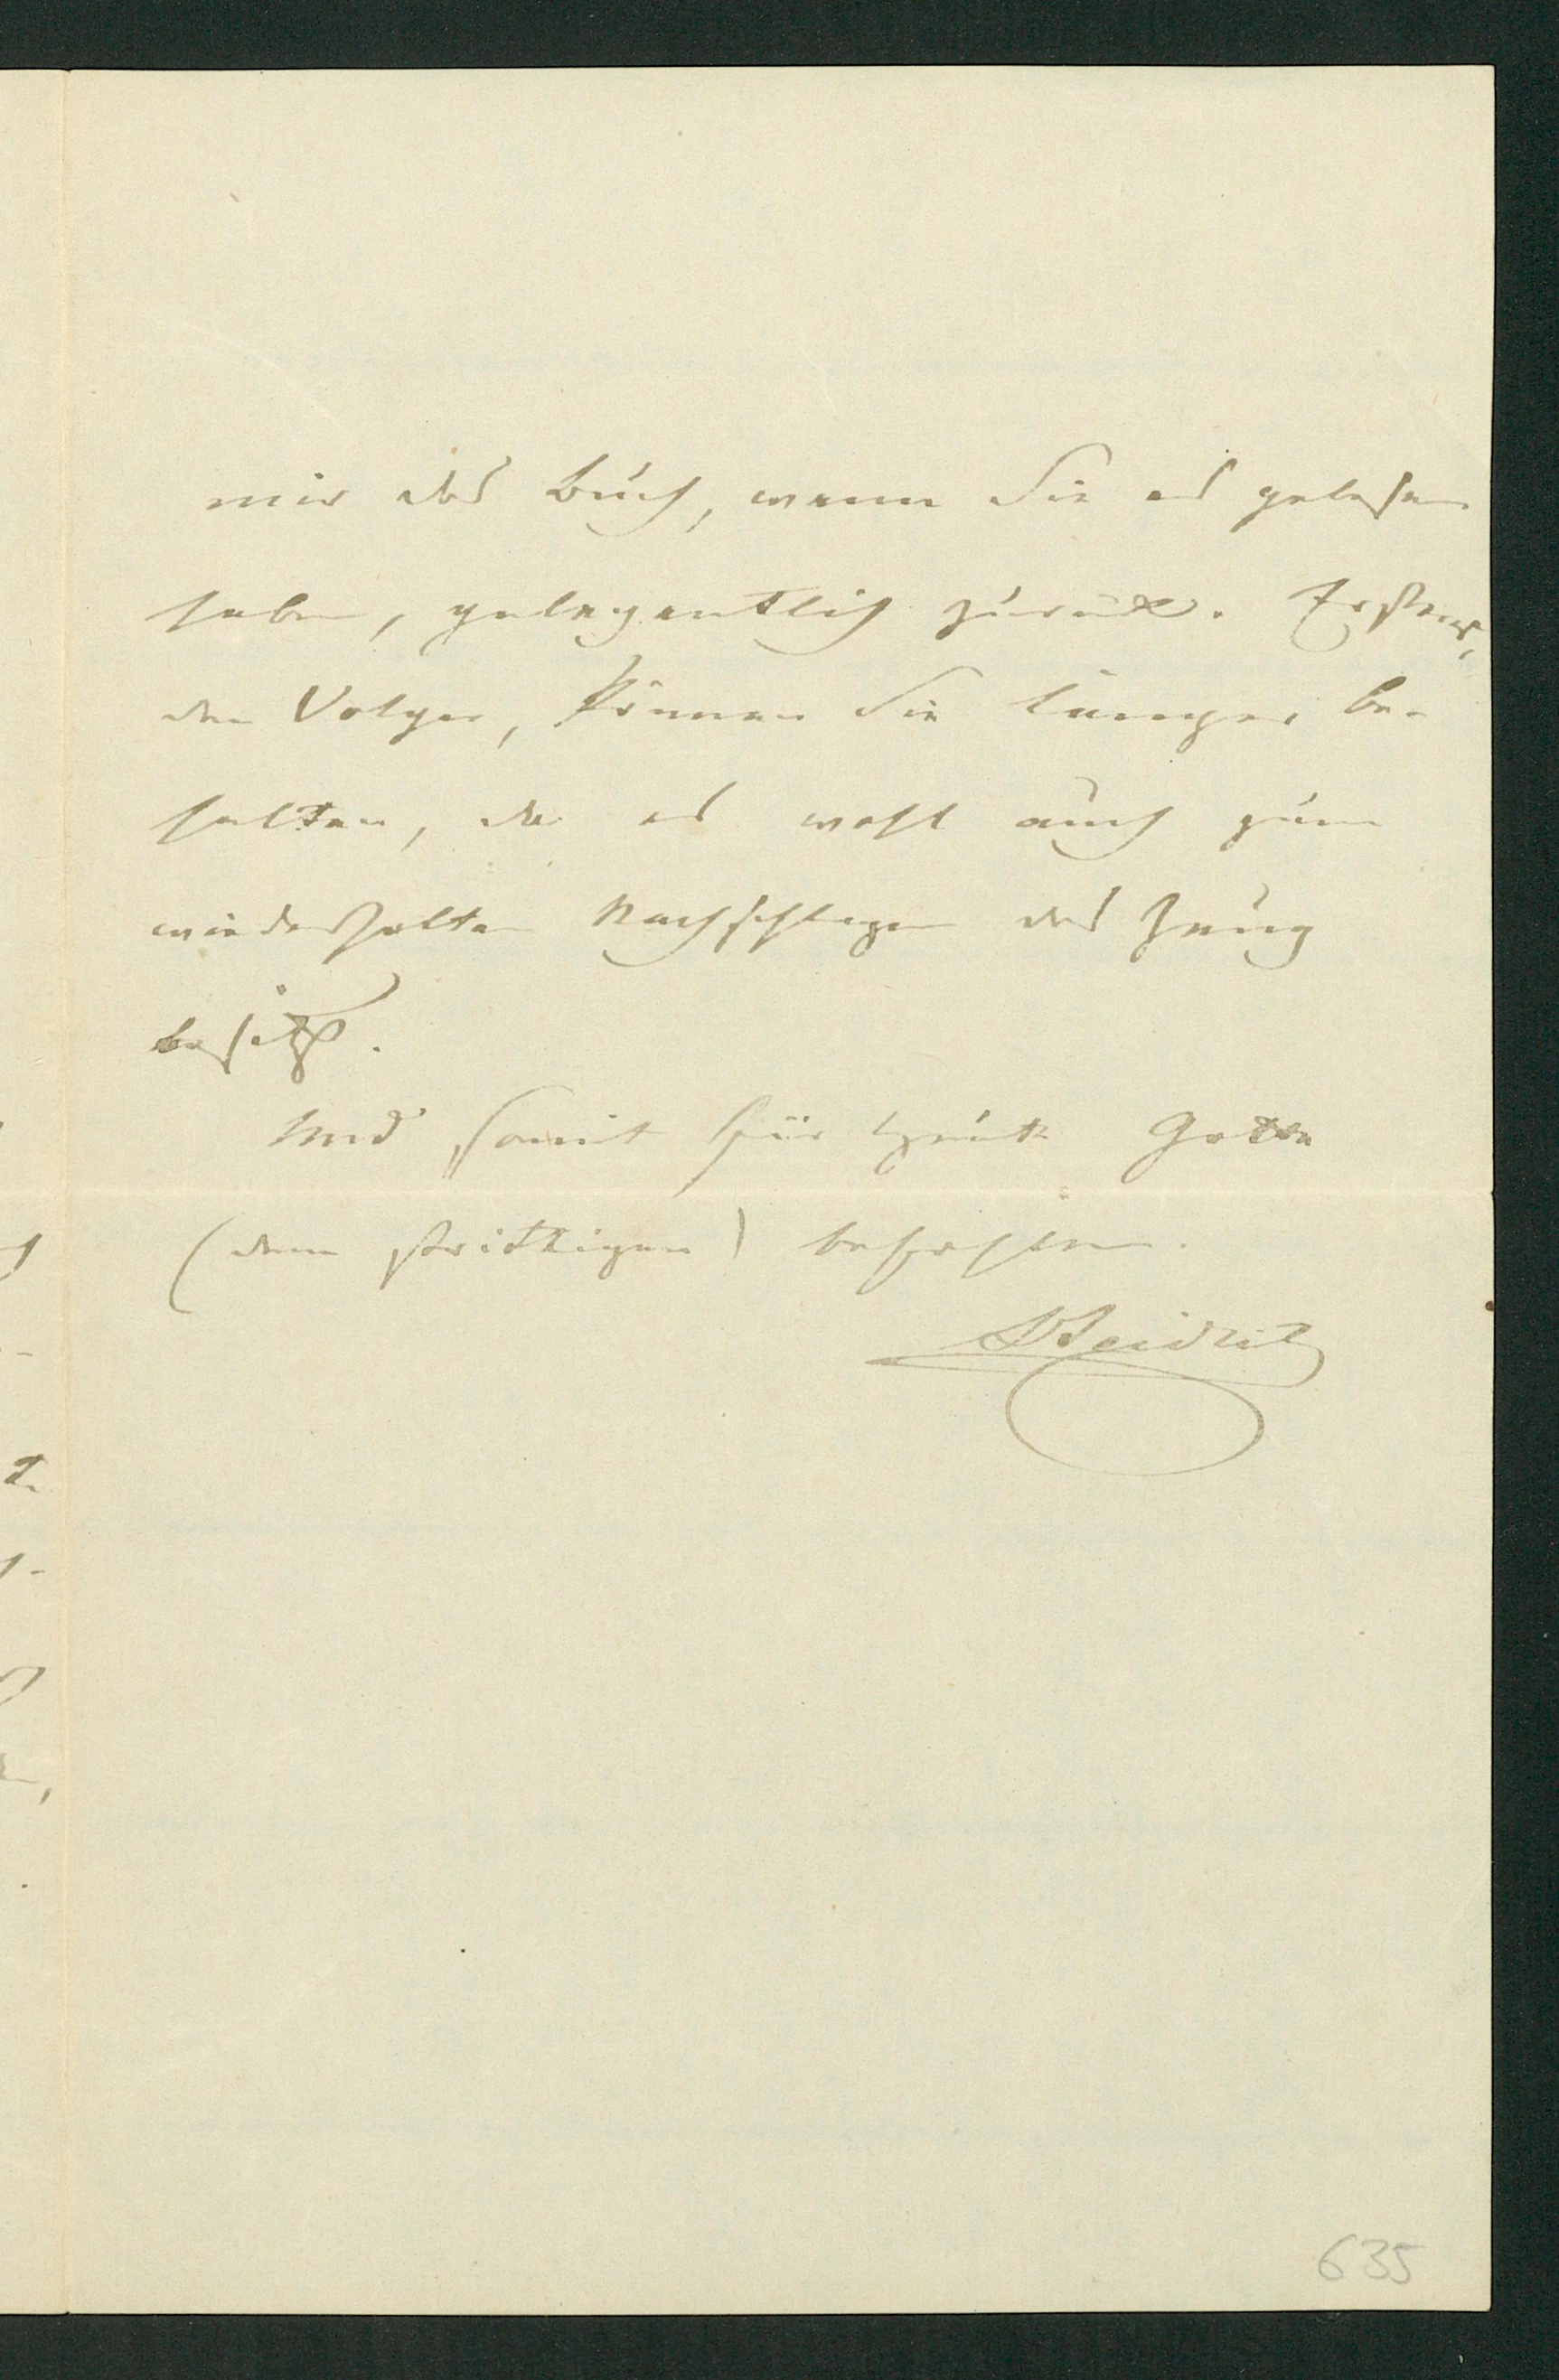 mir das Buch, wenn Sie es gelesen
haben, gelegentlich zurück. Ersteres,
den Volger, können Sie länger be-
halten, da es wohl auch zum
wiederholten Nachschlagen das Zeug
besitzt.
Und somit für heute Gotte
(dem strittigen) befohlen.
635